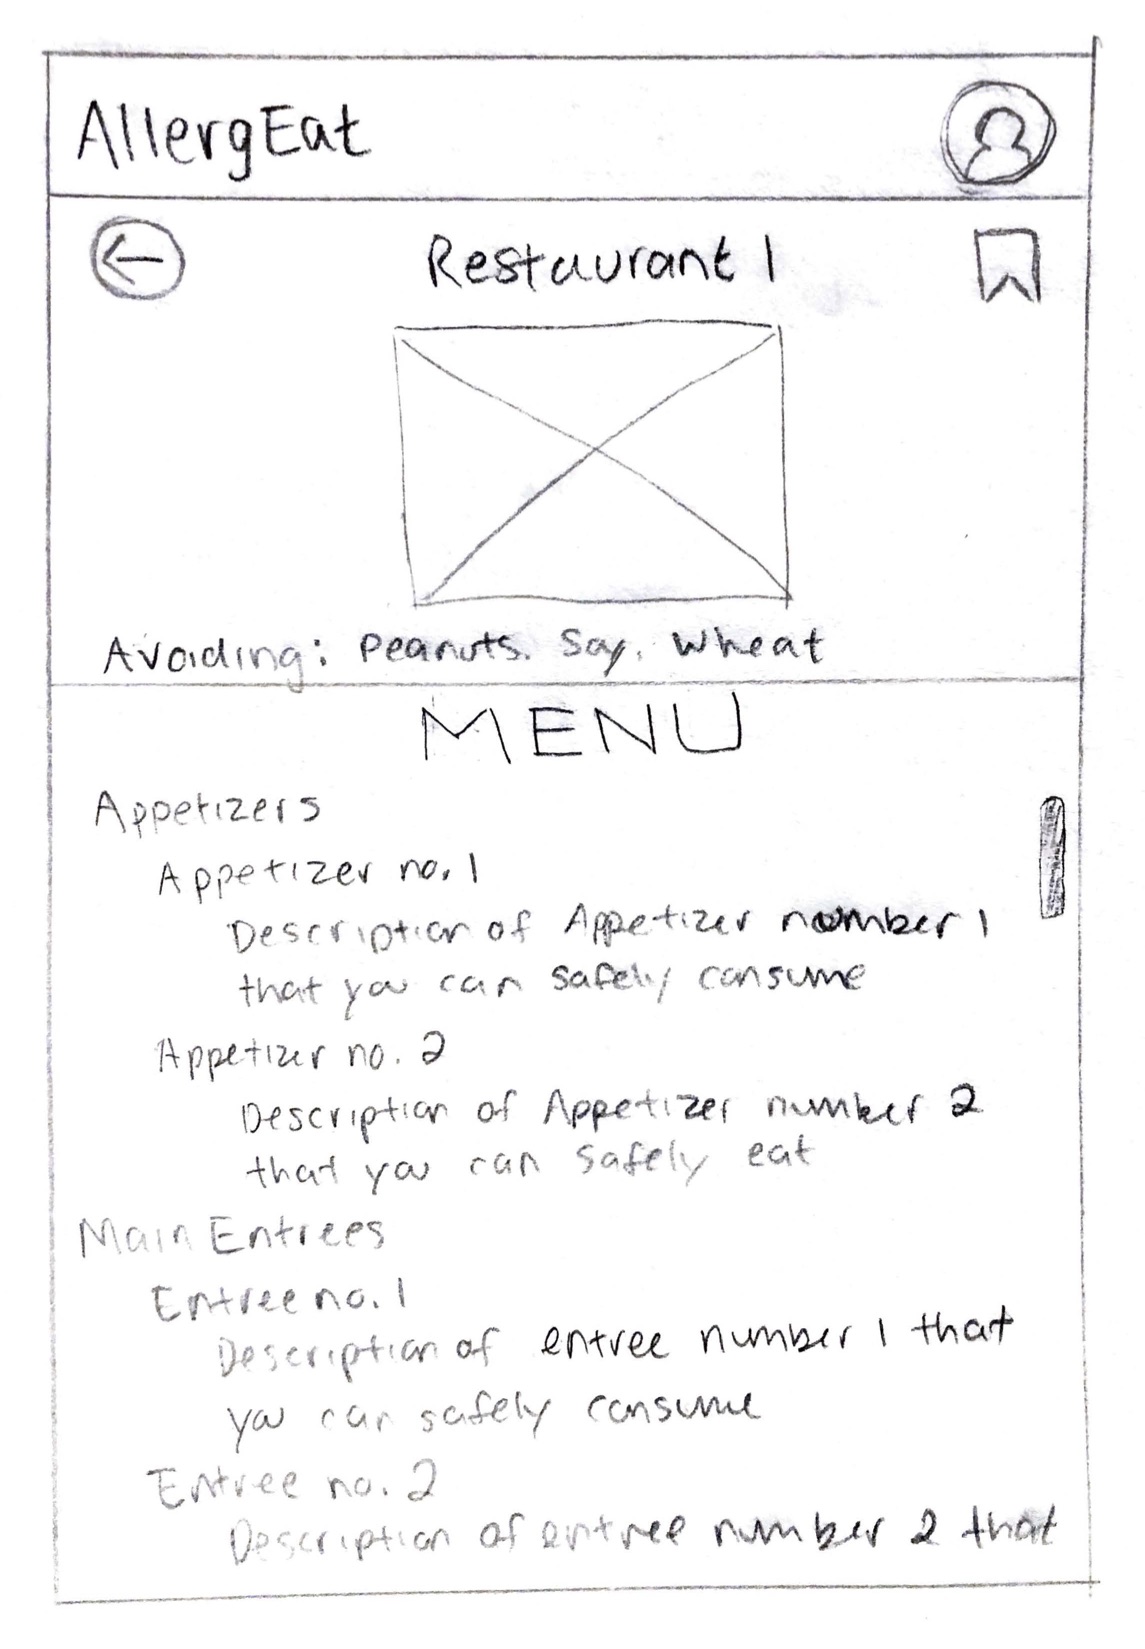 AllergEat
Restaurant 1
Avoiding: Peanuts. Soy. Wheat
MENU
Appetizers
Appetizer no. 1
Description of Appetizer number 1
that you can safely consume
Appetizer no. 2
Description of Appetizer number 2
that you can safely eat
Main Entrees
Entree no. 1
Description of entree number 1 that
you can safely consume
Entree no. 2
Description of entree number 2 that